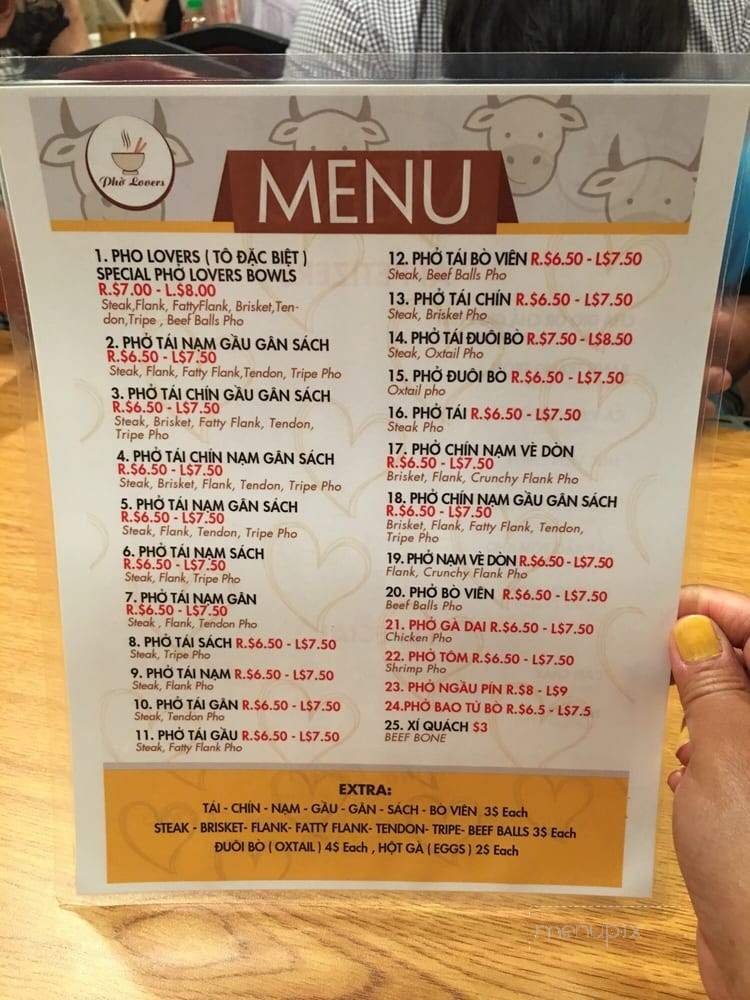 Phở Lovers
MENU
1. PHO LOVERS ( TÔ ĐẶC BIỆT )
SPECIAL PHỞ LOVERS BOWLS
R.$7.00 - L.$8.00
Steak,Flank, FattyFlank, Brisket,Ten-
don,Tripe , Beef Balls Pho
2. PHỞ TÁI NẠM GẦU GÂN SÁCH
R.$6.50 - L$7.50
Steak, Flank, Fatty Flank,Tendon, Tripe Pho
3. PHỞ TÁI CHÍN GẦU GÂN SÁCH
R.$6.50 - L$7.50
Steak, Brisket, Fatty Flank, Tendon,
Tripe Pho
4. PHỞ TÁI CHÍN NẠM GÂN SÁCH
R.$6.50 - L$7.50
Steak, Brisket, Flank, Tendon, Tripe Pho
5. PHỞ TÁI NẠM GÂN SÁCH
R.$6.50 - L$7.50
Steak, Flank, Tendon, Tripe Pho
6. PHỞ TÁI NẠM SÁCH
R.$6.50 - L$7.50
Steak, Flank, Tripe Pho
7. PHỞ TÁI NẠM GÂN
R.$6.50 - L$7.50
Steak , Flank, Tendon Pho
8. PHỞ TÁI SÁCH R.$6.50 - L$7.50
Steak, Tripe Pho
9. PHỞ TÁI NẠM R.$6.50 - L$7.50
Steak, Flank Pho
10. PHỞ TÁI GÂN R.$6.50 - L$7.50
Steak, Tendon Pho
11. PHỞ TÁI GẦU R.$6.50 - L$7.50
Steak, Fatty Flank Pho
12. PHỞ TÁI BÒ VIÊN R.$6.50 - L$7.50
Steak, Beef Balls Pho
13. PHỞ TÁI CHÍN R.$6.50 - L$7.50
Steak, Brisket Pho
14. PHỞ TÁI ĐUÔI BÒ R.$7.50 - L$8.50
Steak, Oxtail Pho
15. PHỞ ĐUÔI BÒ R.$6.50 - L$7.50
Oxtail pho
16. PHỞ TÁI R.$6.50 - L$7.50
Steak Pho
17. PHỞ CHÍN NẠM VÈ DÒN
R.$6.50 - L$7.50
Brisket, Flank, Crunchy Flank Pho
18. PHỞ CHÍN NẠM GẦU GÂN SÁCH
R.$6.50 - L$7.50
Brisket, Flank, Fatty Flank, Tendon,
Tripe Pho
19. PHỞ NẠM VÈ DÒN R.$6.50 - L$7.50
Flank, Crunchy Flank Pho
20. PHỞ BÒ VIÊN R.$6.50 - L$7.50
Beef Balls Pho
21. PHỞ GÀ DAI R.$6.50 - L$7.50
Chicken Pho
22. PHỞ TÔM R.$6.50 - L$7.50
Shrimp Pho
23. PHỞ NGẦU PÍN R.$8 - L$9
24.PHỞ BAO TỬ BÒ R.$6.5 - L$7.5
25. XÍ QUÁCH $3
BEEF BONE
EXTRA:
TÁI - CHÍN - NẠM - GẦU - GÂN - SÁCH - BÒ VIÊN 3$ Each
STEAK - BRISKET- FLANK- FATTY FLANK- TENDON- TRIPE- BEEF BALLS 3$ Each
ĐUÔI BÒ ( OXTAIL ) 4$ Each , HỘT GÀ ( EGGS ) 2$ Each
menupix